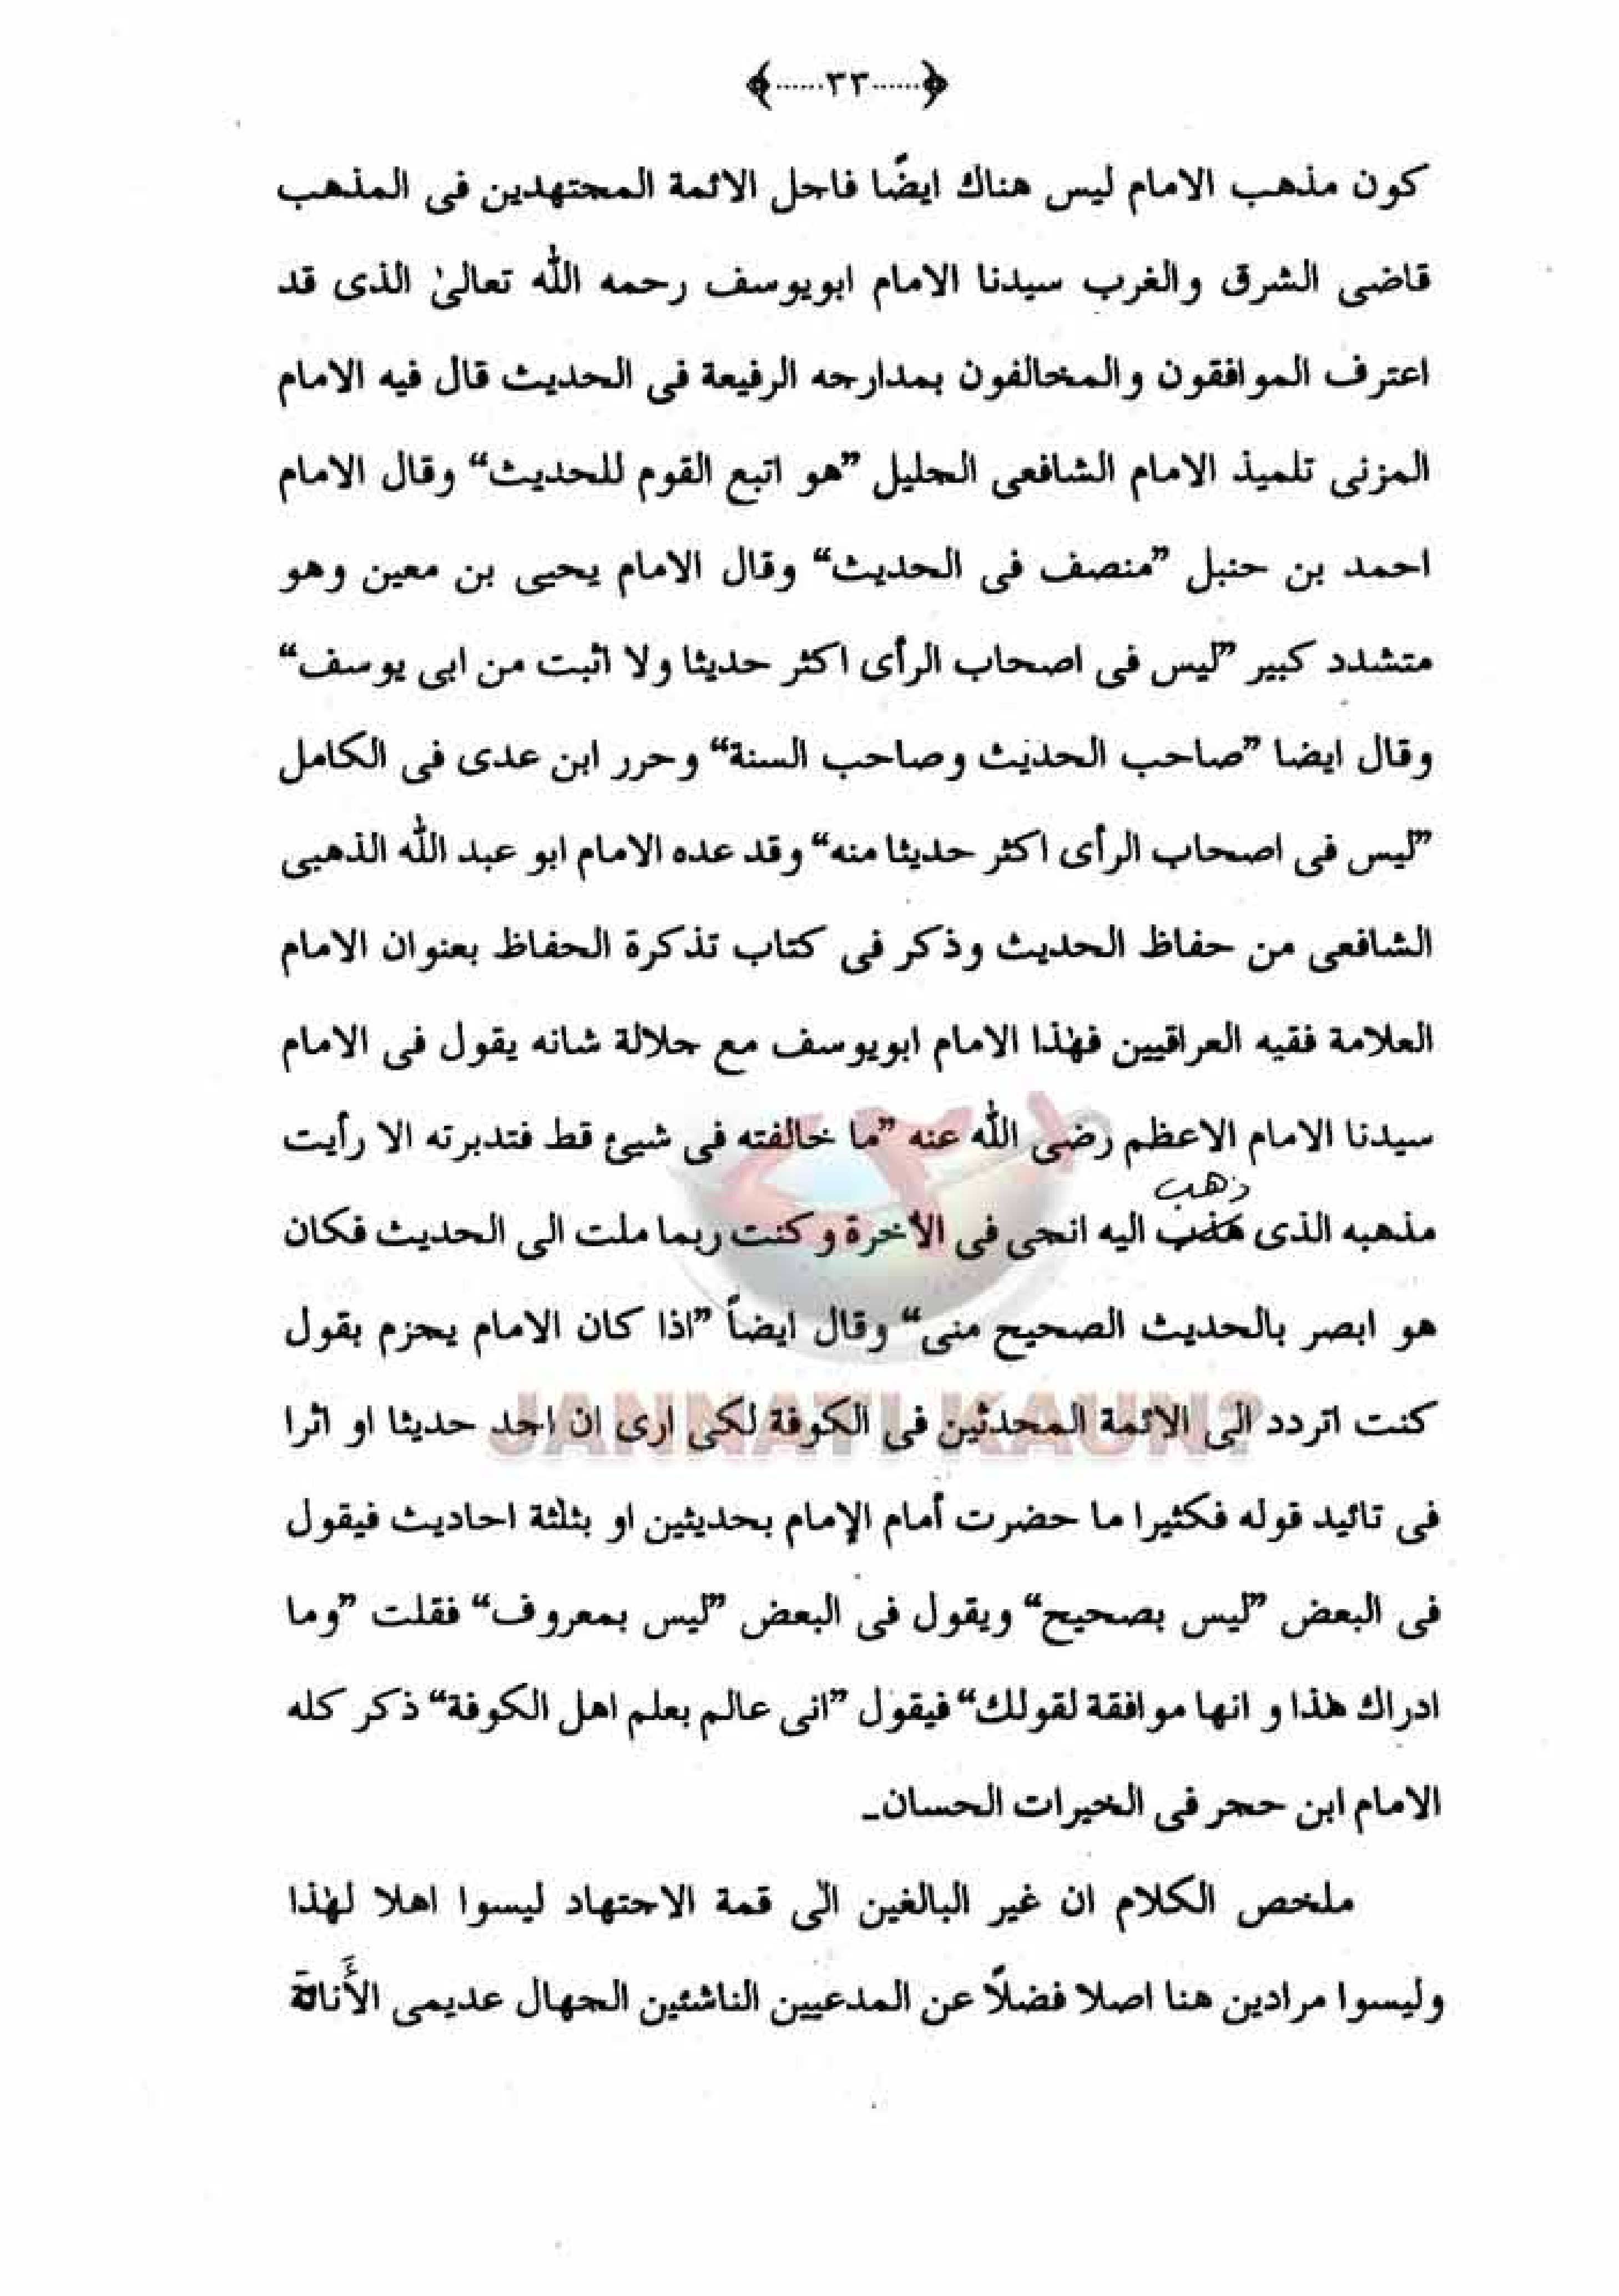 ٣٣
كون مذهب الامام ليس هناك ايضًا فاجل الائمة المجتهدين فى المذهب
قاضى الشرق والغرب سيدنا الامام ابويوسف رحمه الله تعالىٰ الذى قد
اعترف الموافقون والمخالفون بمدارجه الرفيعة فى الحديث قال فيه الامام
المزنى تلميذ الامام الشافعى الجليل ”هو اتبع القوم للحديث“ وقال الامام
احمد بن حنبل ”منصف فى الحديث“ وقال الامام يحيى بن معين وهو
متشدد كبير ”ليس فى اصحاب الرأى اكثر حديثا ولا اثبت من ابى يوسف“
وقال ايضا ”صاحب الحديث وصاحب السنة“ وحرر ابن عدى فى الكامل
”ليس فى اصحاب الرأى اكثر حديثا منه“ وقد عده الامام ابو عبد الله الذهبى
الشافعى من حفاظ الحديث وذكر فى كتاب تذكرة الحفاظ بعنوان الامام
العلامة فقيه العراقيين فهٰذا الامام ابويوسف مع جلالة شانه يقول فى الامام
سيدنا الامام الاعظم رضى الله عنه ”ما خالفته فى شيئ قط فتدبرته الا رأيت
ذهب
مذهبه الذى هذب اليه انجى فى الأخرة و كنت ربما ملت الى الحديث فكان
هو ابصر بالحديث الصحيح منى“ وقال ايضاً ”اذا كان الامام يجزم بقول
كنت اتردد الى الائمة المحدثين فى الكوفة لكى ارى ان اجد حديثا او اثرا
JANNATI KAUN?
فى تائيد قوله فكثيرا ما حضرت أمام الإمام بحديثين او بثلٰثة احاديث فيقول
فى البعض ”ليس بصحيح“ ويقول فى البعض ”ليس بمعروف“ فقلت ”وما
ادراك هٰذا و انها موافقة لقولك“ فيقول ”انى عالم بعلم اهل الكوفة“ ذكر كله
الامام ابن حجر فى الخيرات الحسان۔
ملخص الكلام ان غير البالغين الٰى قمة الاجتهاد ليسوا اهلا لهٰذا
وليسوا مرادين هنا اصلا فضلًا عن المدعيين الناشئين الجهال عديمى الأَناة